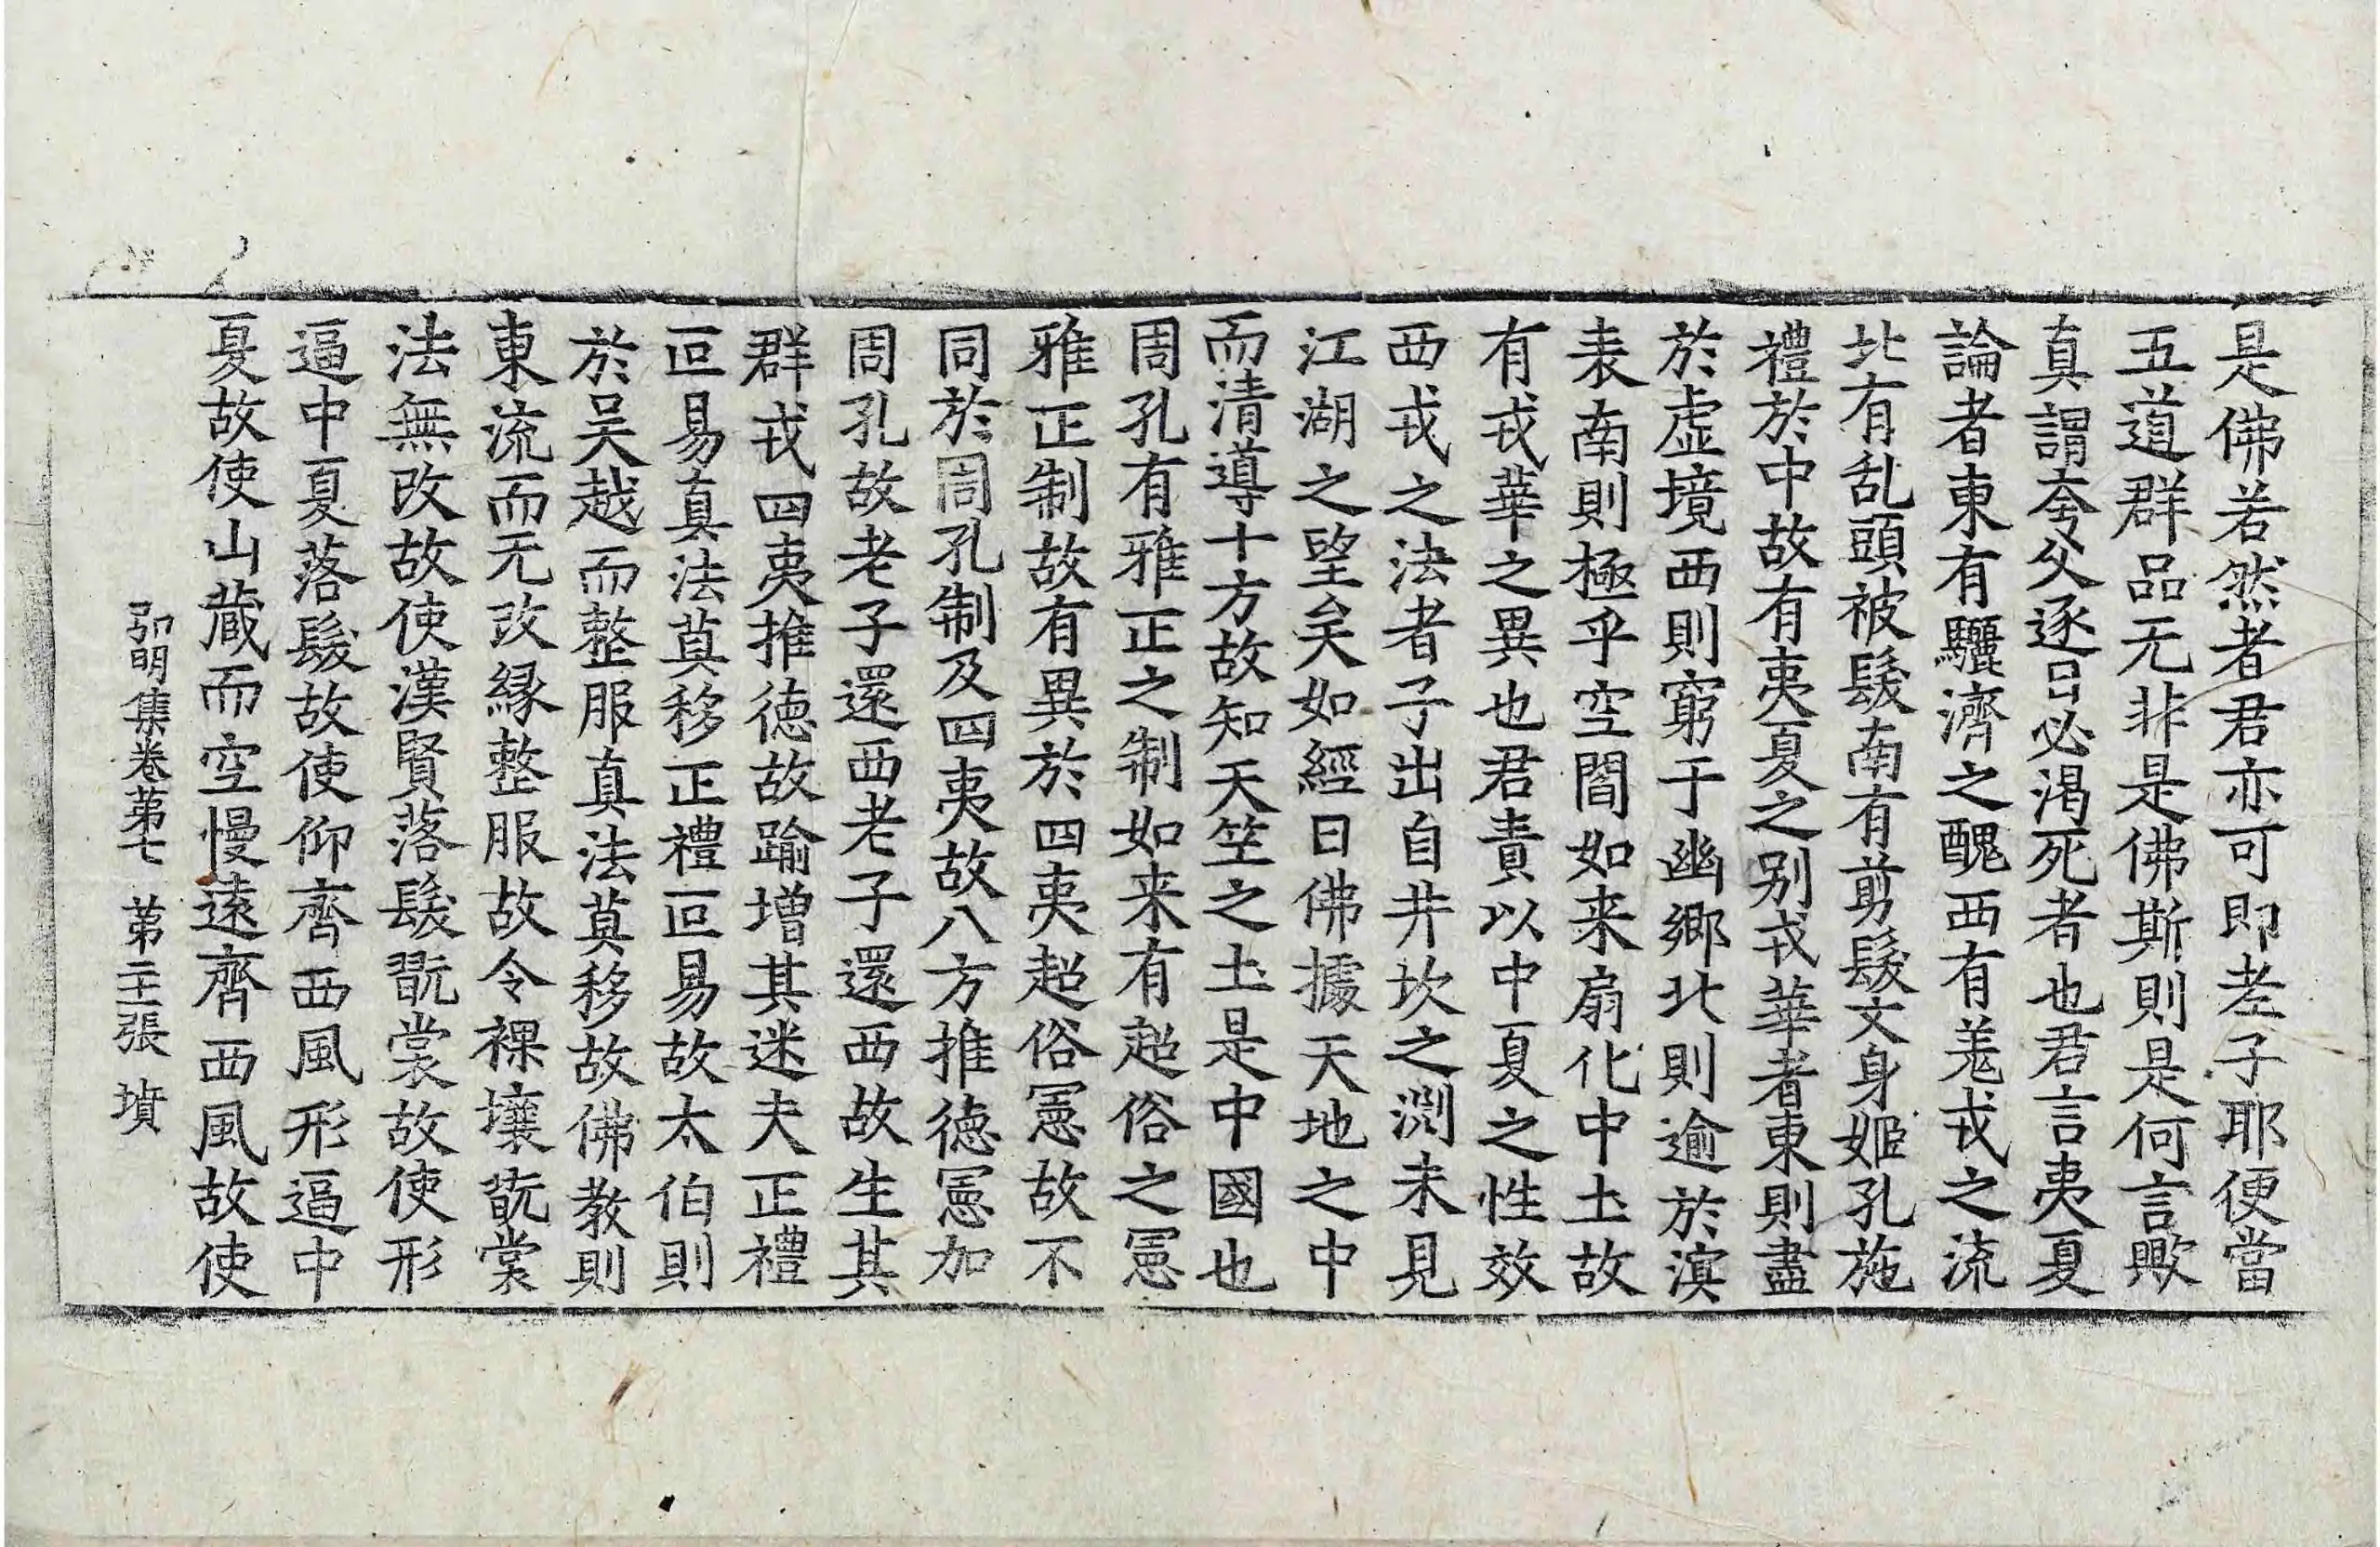 是佛若然者君亦可即老子耶便當
五道群品无非是佛斯則是何言歟
真謂夸父逐日必渴死者也君言夷夏
論者東有驪濟之醜西有羗戎之流
北有乱頭被髮南有剪髮文身姬孔施
禮於中故有夷夏之別戎華者東則盡
於虛境西則窮于幽鄉北則逾於溟
表南則極乎空閻如来扇化中土故
有戎華之異也君責以中夏之性效
西戎之法者子出自井坎之渕未見
江湖之望矣如經曰佛據天地之中
而清導十方故知天竺之土是中國也
周孔有雅正之制如来有超俗之憲
雅正制故有異於四夷超俗憲故不
同於周孔制及四夷故八方推德憲加
周孔故老子還西老子還西故生其
群戎四夷推德故踰增其迷夫正禮
叵易真法莫移正禮叵易故太伯則
於吳越而整服真法莫移故佛教則
東流而无改緣整服故令裸壤翫裳
法無改故使漢賢落髮翫裳故使形
逼中夏落髮故使仰齊西風形逼中
夏故使山藏而空慢遠齊西風故使
弘明集卷第七 第二十一張 墳